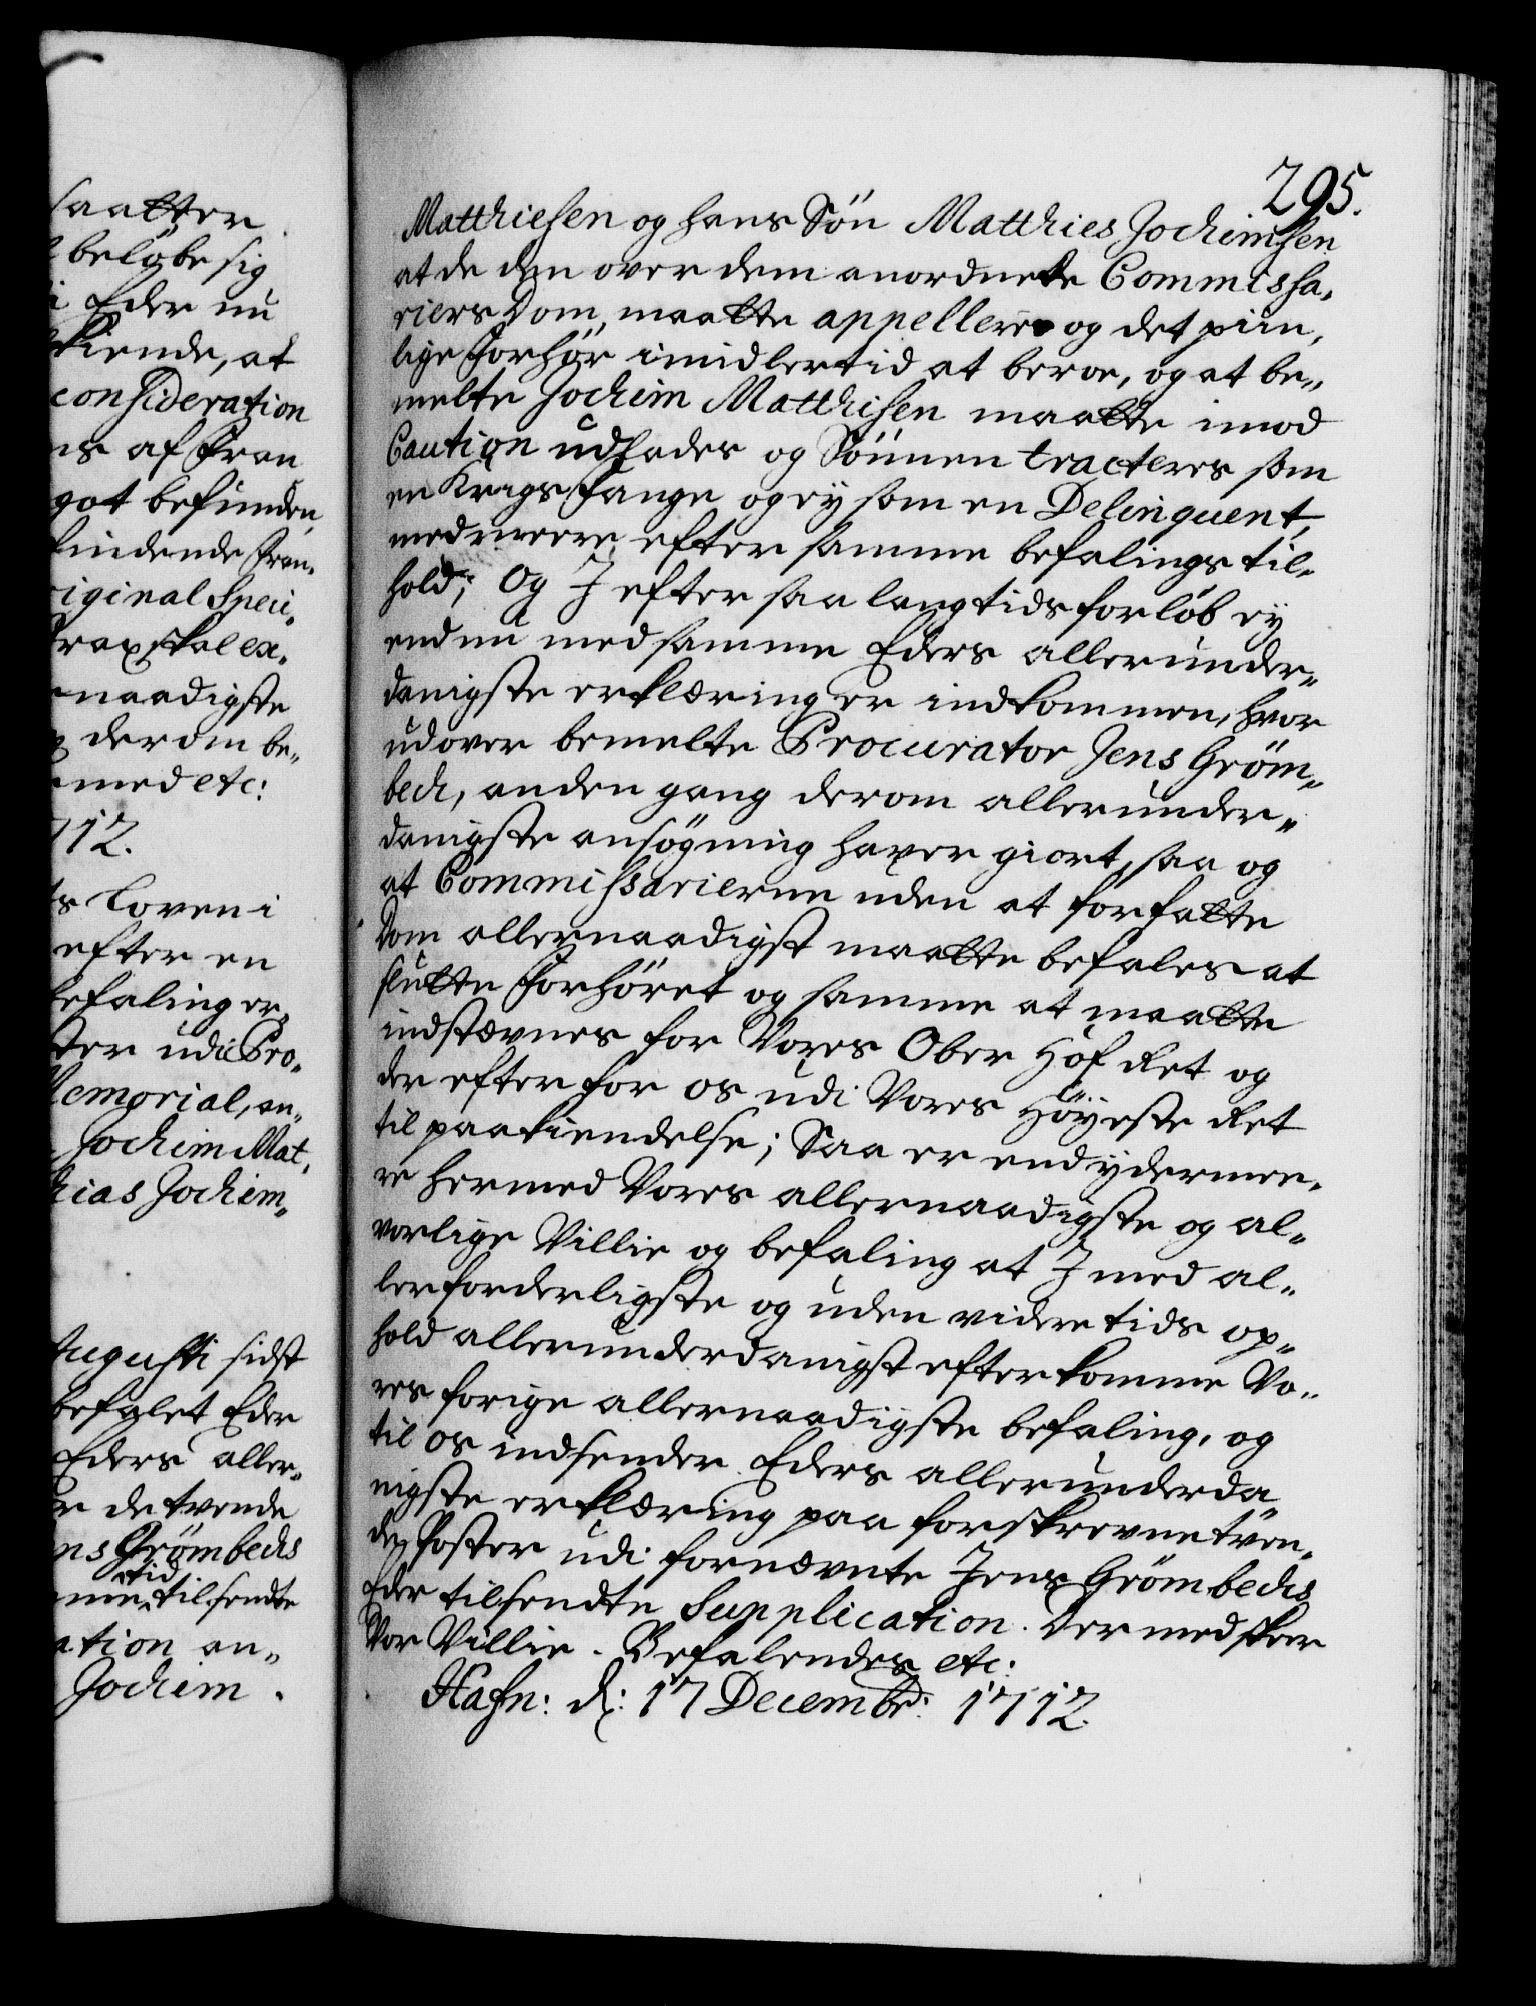 saatter
beløbe sig
i Eder nu
kiende, at
consideration
ns af Fran
got befunden
findende Fran,
riginal Speci,
rax skal ex,
naadigste
der den be,,
med etc:
712.
ts Loven i
efter en
befaling er,
ster udi Pro,
Memorial, an,
Jochim Mat,
hias Jochim,,
Augusti sidst
befalet Eder
Eders aller,
r de tvende
ns Grömbechs
tid
me tilsendte
ation an,,
Jochim
295.
Matthiesen og hans Søn Matthies Jochimsen
at de den over dem anordnede Commissa,
riers Dom, maatte appellere og det piin,
lige Forhør imidlertid at beroe, og at be,,
melte Jochim Matthisen maatte imod
Caution udlades og Sønnen tracteres som
en Krigs Fange og ey som en Delinquent,
med meere efter samme befalings til,
hold; Og J efter saa lang tids forløb ey
endnu med samme Eders allerunder,,
danigste erklæring er indkommen, hvor
udover bemelte Procurator Jens Gröm,,
bech, anden gang derom allerunder,,
danigste ansøgning haver giort, saa og
at Commissarierne uden at forfatte
Dom allernaadigst maatte befales at
slutte Forhøret og samme at maatte
indstævnes for Vores Ober Hof Ret og
der efter for os udi Vores Høyeste Ret
til paakiendelse; Saa er end ydermee,
re hermed Vores allernaadigste og al,,
vorlige Villie og befaling at J med al,,
lerforderligste og uden videre tids op,,
hold allerunderdanigst efterkomme Vo,,
res forige allernaadigste befaling, og
til os indsender Eders allerunderda,,
nigste erklæring paa forskrevne tven,,
de Poster udi fornævnte Jens Grömbechs
Eder tilsendte Supplication. Dermed skeer
Vor Villie. Befalendes etc:
Hafn: d: 17 Decembr: 1712.